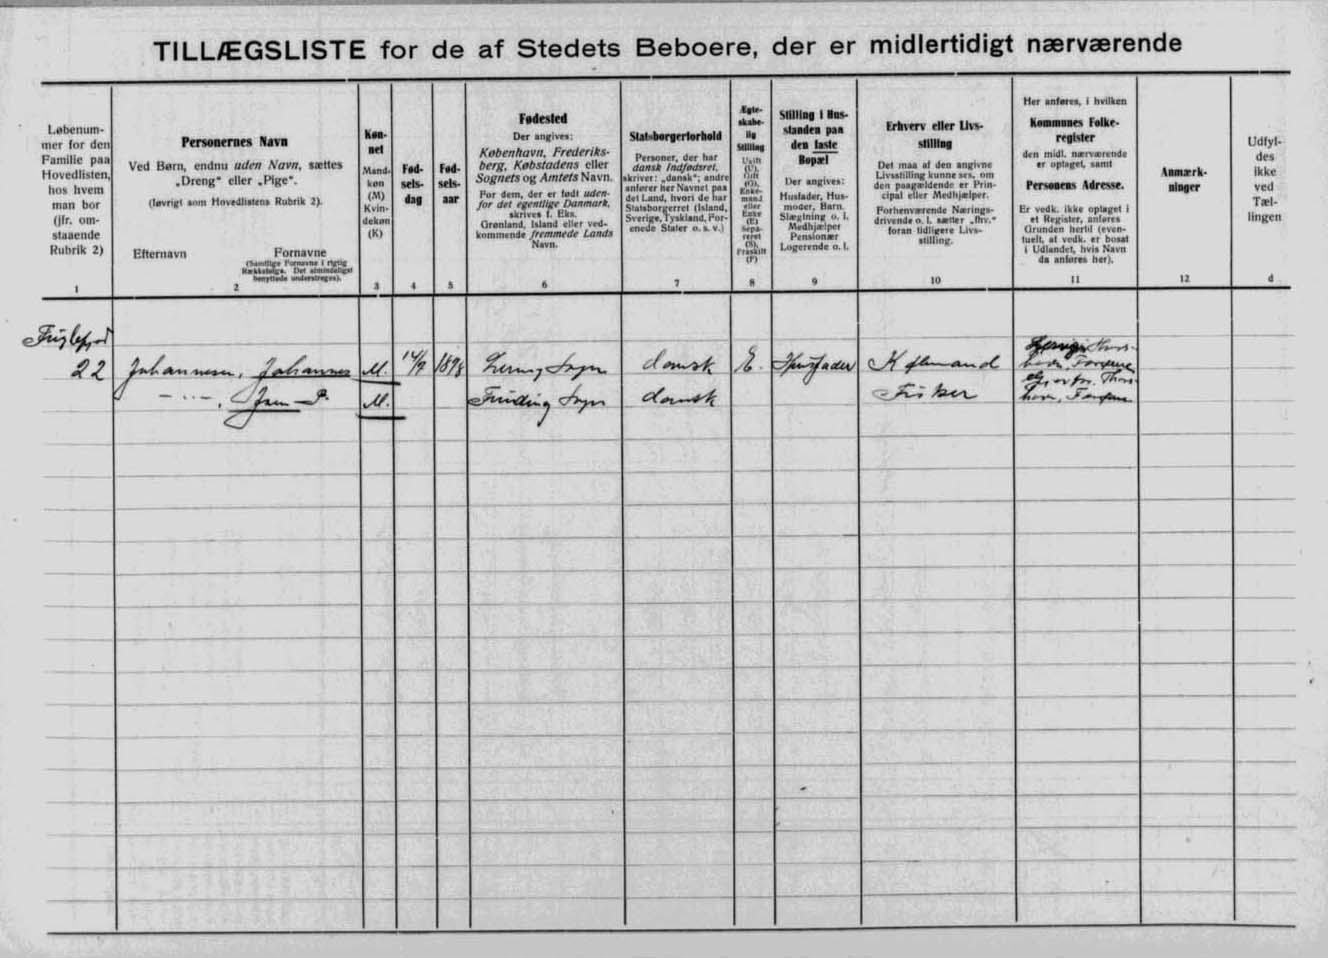 TILLÆGSLISTE for de af Stedets Beboere, der er midlertidigt nærværende
Løbenum-
mer for den
Familie paa
Hovedlisten,
hos hvem
man bor
(jfr. om-
staaende
Rubrik 2)
1
Personernes Navn
Ved Børn, endnu uden Navn, sættes
„Dreng“ eller „Pige“.
(Iøvrigt som Hovedlistens Rubrik 2).
Efternavn Fornavne
(Samtlige Fornavne i rigtig
Rækkefølge. Det almindeligst
benyttede understreges).
2
Køn-
net
Mand-
køn
(M)
Kvin-
dekøn
(K)
3
Fød-
sels-
dag
4
Fød-
sels-
aar
5
Fødested
Der angives:
København, Frederiks-
berg, Købstadens eller
Sognets og Amtets Navn.
For dem, der er født uden-
for det egentlige Danmark,
skrives f. Eks.
Grønland, Island eller ved-
kommende fremmede Lands
Navn.
6
Statsborgerforhold
Personer, der har
dansk Indfødsret,
skriver: „dansk“; andre
anfører her Navnet paa
det Land, hvori de har
Statsborgerret (Island,
Sverige, Tyskland, For-
enede Stater o. s. v.)
7
Ægte-
skabe-
lig
Stilling
Ugift
(U),
Gift
(G),
Enke-
mand
eller
Enke
(E)
Sepa-
reret
(S),
Fraskilt
(F)
8
Stilling i Hus-
standen paa
den faste
Bopæl
Der angives:
Husfader, Hus-
moder, Barn,
Slægtning o. l.
Medhjælper
Pensionær
Logerende o. l.
9
Erhverv eller Livs-
stilling
Det maa af den angivne
Livsstilling kunne ses, om
den paagældende er Prin-
cipal eller Medhjælper.
Forhenværende Nærings-
drivende o. l. sætter „fhv.“
foran tidligere Livs-
stilling.
10
Her anføres, i hvilken
Kommunes Folke-
register
den midl. nærværende
er optaget, samt
Personens Adresse.
Er vedk. ikke optaget i
et Register, anføres
Grunden hertil (even-
tuelt, at vedk. er bosat
i Udlandet, hvis Navn
da anføres her).
11
Anmærk-
ninger
12
Udfyl-
des
ikke
ved
Tæl-
lingen
d
22 Johannesen, Johannes M. 14/9 1898 Sogn dansk E. Husfader Købmand
— „ — , P. M. Sogn dansk Fisker